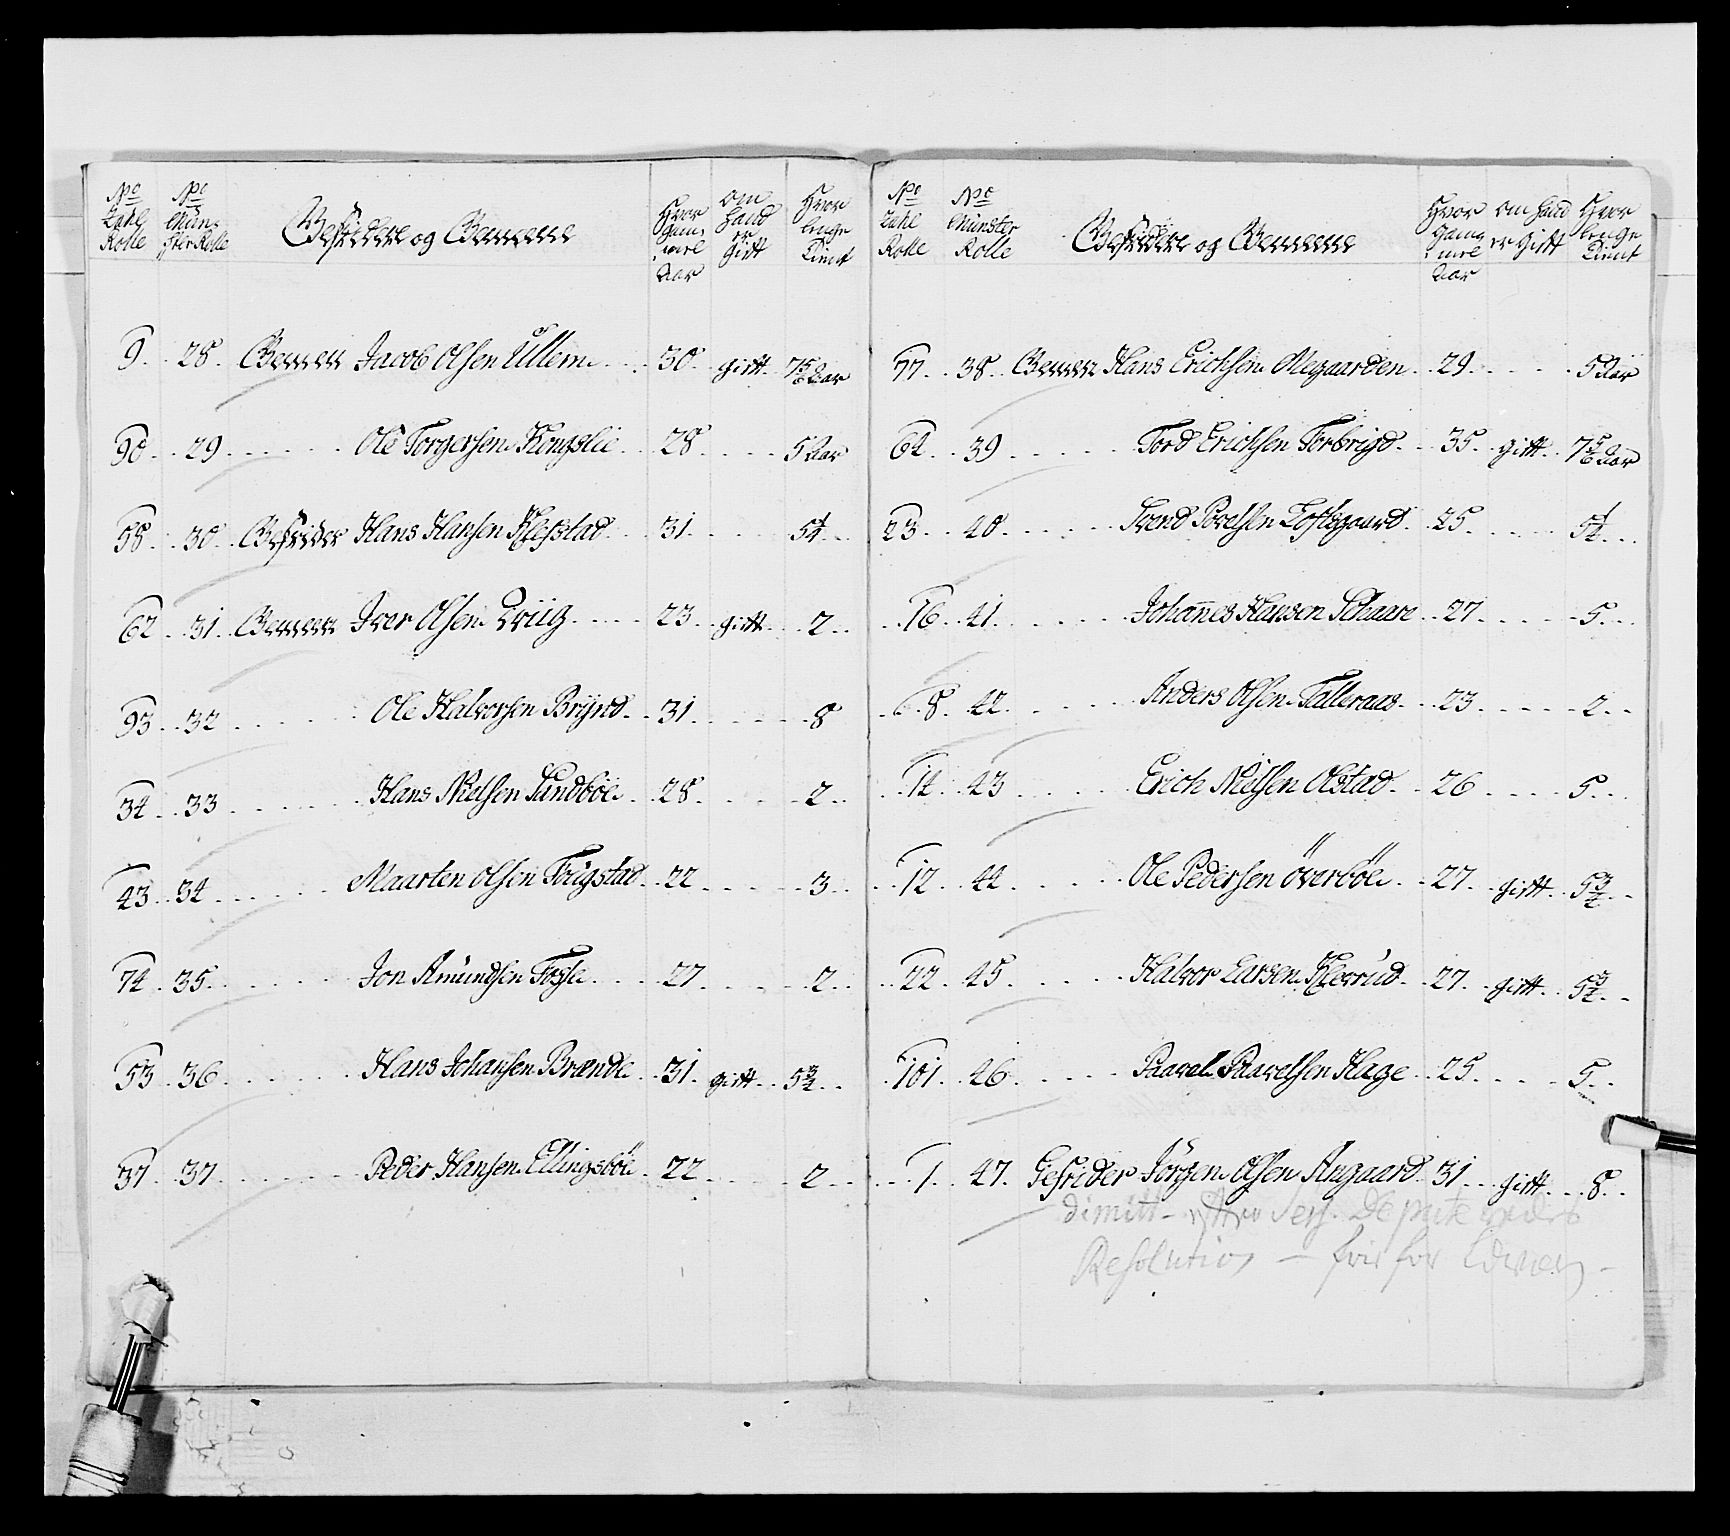 No Zahl Rolle No Münster Rolle Gefridere og Gemeene Hvor Gammel Aar Om Hand er Gift Hvor lenge Tient
9. 28. Gemeen Jacob Olsen Ullern 30. gift 7 5/6 Aar
90. 29. Ole Torgersen Kongslie 28. 5 Aar
58. 30. Gefrider Hans Hansen Klefstad 31. 5 1/4
62. 31. Gemeen Iver Olsen 23. gift 2
93. 32. Ole Halvorsen Brynd 31. 8
34. 33. Hans Nielsen Sandböe 28. 2
43. 34. Maarten Olsen Fougstad 22. 3
74. 35. Jon Amundsen Fosse 27. 2
53. 36. Hans Johansen Brænde 31. gift 5 3/4
37. 37. Peder Hansen Ellingsböe 22. 2
No Zahl Rolle No Münster Rolle Gefridere og Gemeene Hvor Gammel Aar Om Hand er Gift Hvor lenge Tient
77. 38. Gemeen Hans Erichsen Megaarden 29. 5 Aar
64. 39. Tord Erichsen Forbrigd 35. gift 7 5/6 Aar
23. 40. Svend Povelsen Toftsgaard 25. 5 1/4
16. 41. Johannes Hansen Schaare 27. 5
8. 42. Anders Olsen Talleraas 23. 2
14. 43. Erich Nielsen Olstad 26. 5
12. 44. Ole Pedersen Överböe 27. gift 5 3/4
22. 45. Halvor Larsen Klevrud 27. gift 5 3/4
101. 46. Paavel Paavelsen Hage 25. 5
1. 47. Gefrider Jörgen Olsen Angaard 31. gift 8
dimitt
Resolution — for